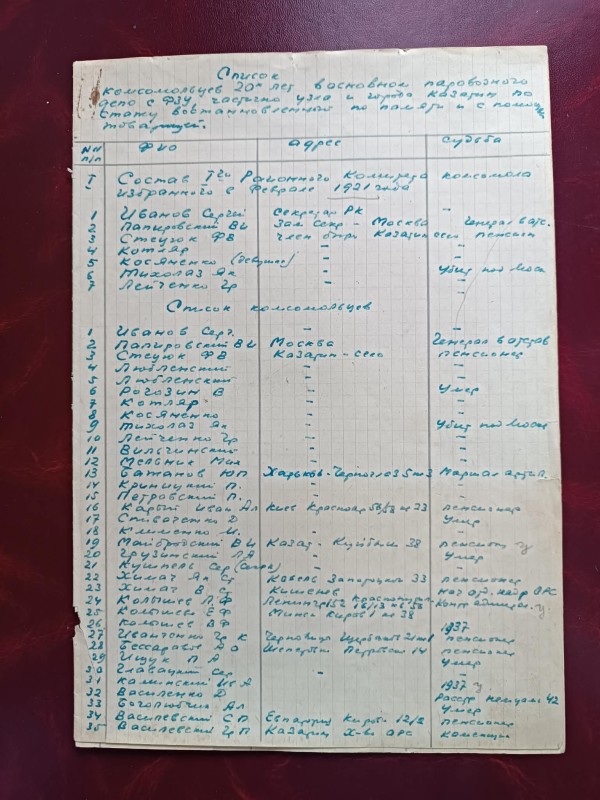 Список
комсомольцев 20х лет в основном паровозного
депо с ФЗУ, частично узла и города Казатин по
стажу восстановленной по памяти и с помощ
товарищей.
NN п/п ФИО адрес судьба
I Состав 1го Районного Комитета комсомола
избранного в Феврале 1921 года
1 Иванов Сергей Секретарь РК -
2 Папировский ВИ Зам секр - Москва Генерал в отс.
3 Стецюк ФВ член бюро Казатин село пенсион
4 Котляр - -
5 Косяненко (девушка) - -
6 Тихолаз Як - Убит под Моск
7 Лейченко Гр - -
Список комсомольцев
1 Иванов Серг. - -
2 Папировский ВИ Москва Генерал в отстав
3 Стецюк ФВ Казатин - село пенсионер
4 Любленский - -
5 Любленский - -
6 Рогозин В - Умер
7 Котляр - -
8 Косяненко - -
9 Тихолаз Як - Убит под Моск
10 Лейченко Гр - -
11 Вильчинский - -
12 Мельник Мих - -
13 Батанов ЮП Харьков- Маршал артил.
14 Криницкий П. -
15 Петровский П. -
16 Карый Иван Ал Киев Красноар 23 пенсионер
17 Д - Умер
18 Клименко М. -
19 Майбродский ВИ Казат - Куйбыш 38 пенсион
20 Грузинский ЛА - Умер
21 Кушпель Сер
22 Химач Як Ст Запорожск 33 пенсионер
23 Химач В ст Кишенев нач отд. кадр ОРС
24 Колышев П.Ф Ленингр 152 Контр адмирал
25 Колышев ЕФ Минск Киров 1 кв 38
26 Колышев ВФ 1937
27 Иванченко Гр К Черновицы пенсионер
28 Бессарабов А О Шепетовк Петровск 14 пенсионер
29 Ищук П А Умер
30 Главацкий Сер -
31 Каминский Ив А 1937
32 Василенко Д Расстр немцами 42
33 Боголюбчик Ал Умер
34 Василевский С П Евпатория Киров - 12/2 пенсионер
35 Василевский Гр П Казатин Х-во ОРС